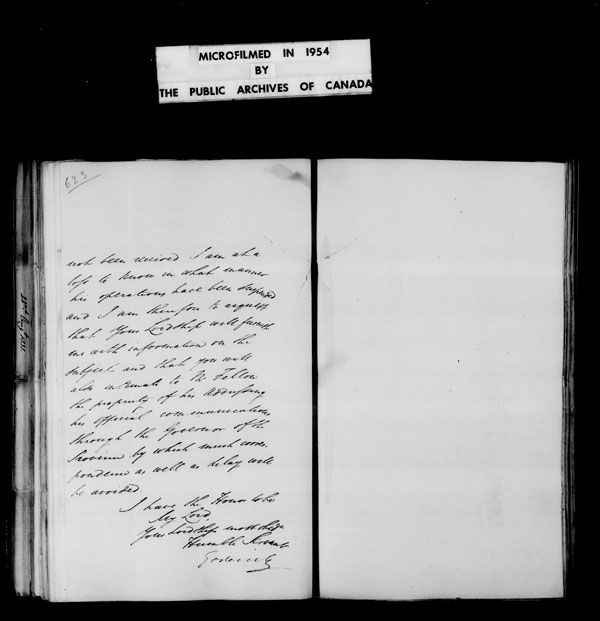 MICROFILMED IN 1954
BY
THE PUBLIC ARCHIVES OF CANADA
623
not been received I am at a
loss to know in what manner
his operations have been suspended
and I am therefore to request
that Your Lordship will furnish
me with information on the
subject and that you will
also intimate to Mr Felton
the propriety of his addressing
his official communications
through the Governor of the
Province by which much corres
pondence as well as delay will
be avoided.
I have the Honor to be
My Lord
Your Lordships most obedt
Humble Servant
Goderich